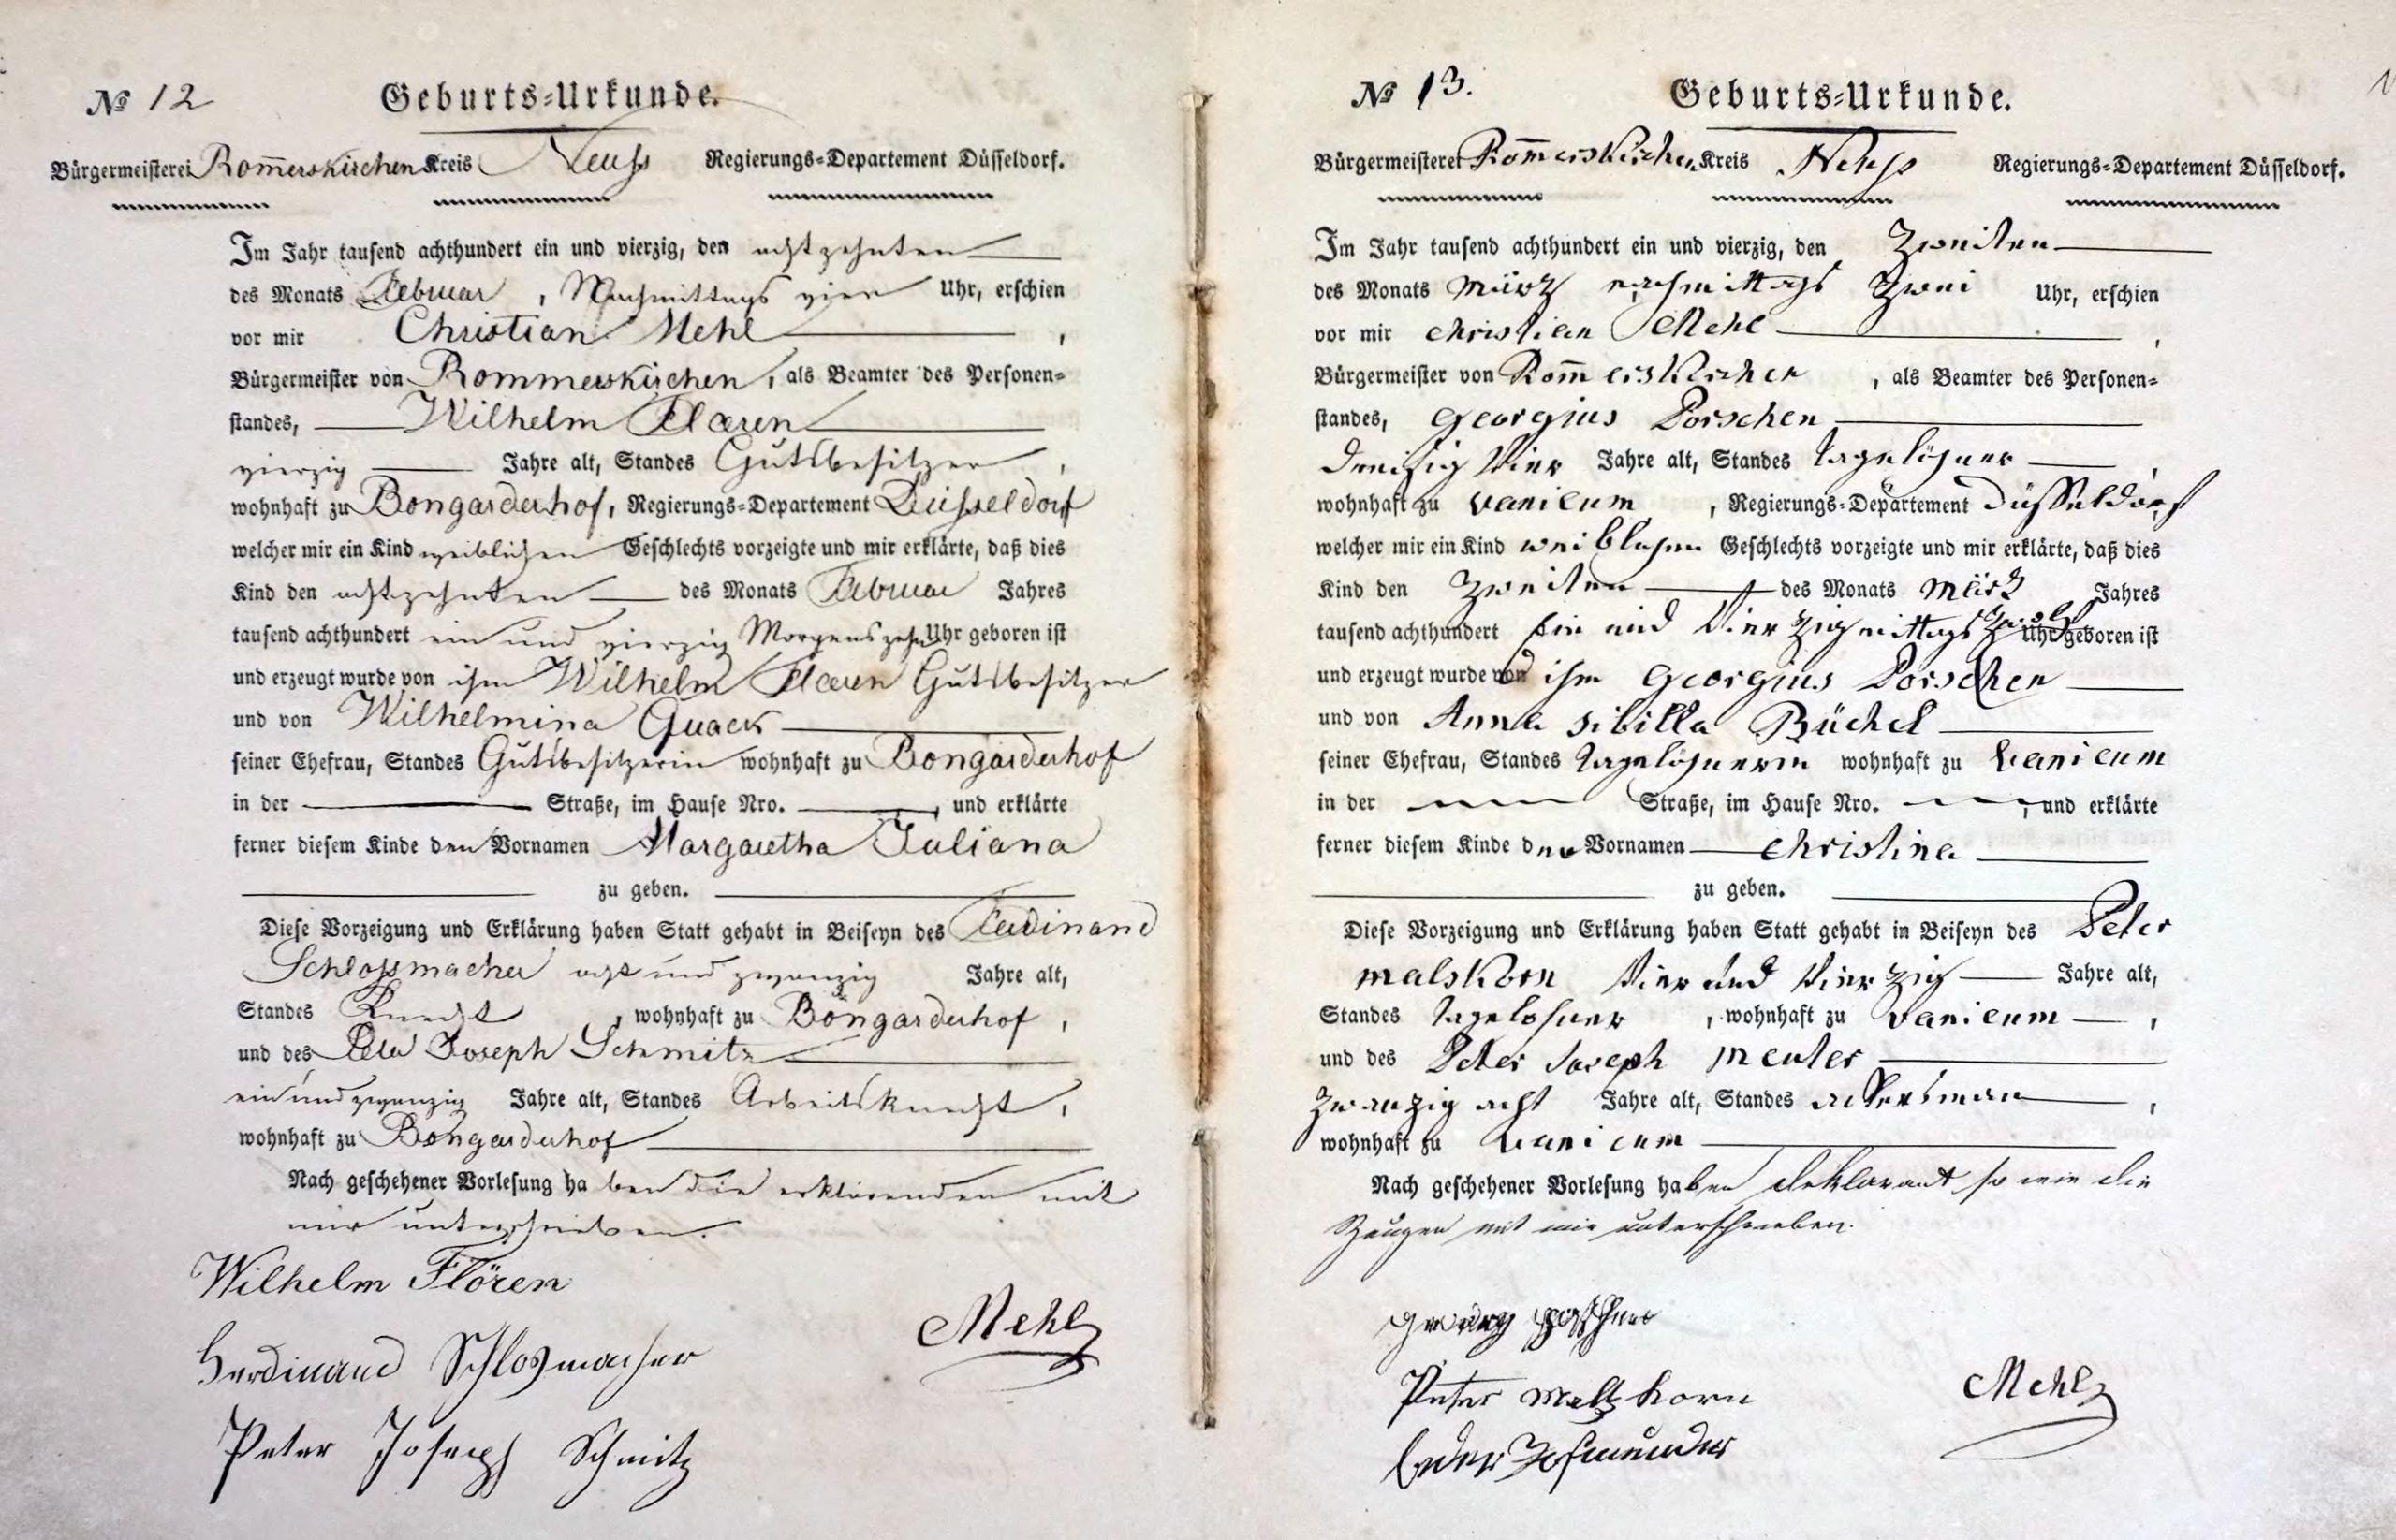 № 12 Geburts=Urkunde.
Bürgermeisterei Rom̅erskirchen Kreis Neuss Regierungs=Departement Düsseldorf.
Im Jahr tausend achthundert ein und vierzig, den achtzehnten
des Monats Februar, Nachmittags vier Uhr, erschien
vor mir Christian Mehl,
Bürgermeister von Rommerskirchen, als Beamter des Personen=
standes, Wilhelm Flœren
vierzig Jahre alt, Standes Gutsbesitzer,
wohnhaft zu Bongarderhof, Regierungs=Departement Düsseldorf
welcher mir ein Kind weiblichen Geschlechts vorzeigte und mir erklärte, daß dies
Kind den achtzehnten des Monats Februar Jahres
tausend achthundert ein und vierzig Morgens zehn Uhr geboren ist
und erzeugt wurde von ihm Wilhelm Flœren Gutsbesitzer
und von Wilhelmina Quack
seiner Ehefrau, Standes Gutsbesitzerin wohnhaft zu Bongarderhof
in der Straße, im Hause Nro. , und erklärte
ferner diesem Kinde den Vornamen Margaretha Juliana
zu geben.
Diese Vorzeigung und Erklärung haben Statt gehabt in Beiseyn des Ferdinand
Schlossmacher acht und zwanzig Jahre alt,
Standes Knecht, wohnhaft zu Bongarderhof,
und des Peter Joseph Schmitz
ein und zwanzig Jahre alt, Standes Arbeitsknecht,
wohnhaft zu Bongarderhof
Nach geschehener Vorlesung haben die erklärenden mit
mir unterschrieben.
Wilhelm Flören
Mehl
Ferdinand Schloßmacher
Peter Joseph Schmitz
№ 13. Geburts=Urkunde.
Bürgermeisterei Rom̅erskirchen Kreis Neuss Regierungs=Departement Düsseldorf.
Im Jahr tausend achthundert ein und vierzig, den Zweiten
des Monats März nachmittags Zwei Uhr, erschien
vor mir Christian Mehl,
Bürgermeister von Rom̅erskirchen, als Beamter des Personen=
standes, Georgius Porschen
dreißig Vier Jahre alt, Standes Tagelöhner,
wohnhaft zu vanicum, Regierungs=Departement Düsseldorf
welcher mir ein Kind weiblichen Geschlechts vorzeigte und mir erklärte, daß dies
Kind den Zweiten des Monats März Jahres
tausend achthundert Ein und Vierzig mittags Zwölf Uhr geboren ist
und erzeugt wurde von ihm Georgius Porschen
und von Anna Sibilla Büchel
seiner Ehefrau, Standes Tagelöhnerin wohnhaft zu vanicum
in der Straße, im Hause Nro. , und erklärte
ferner diesem Kinde den Vornamen Christina
zu geben.
Diese Vorzeigung und Erklärung haben Statt gehabt in Beiseyn des Peter
malskorn Vier und Vierzig Jahre alt,
Standes Tagelohner, wohnhaft zu vanicum,
und des Peter Joseph meuter
Zwanzig acht Jahre alt, Standes Ackersman,
wohnhaft zu vanicum
Nach geschehener Vorlesung haben deklarant so wie die
Zeugen mit mir unterschrieben.
Peter Maltzkorn
Mehl